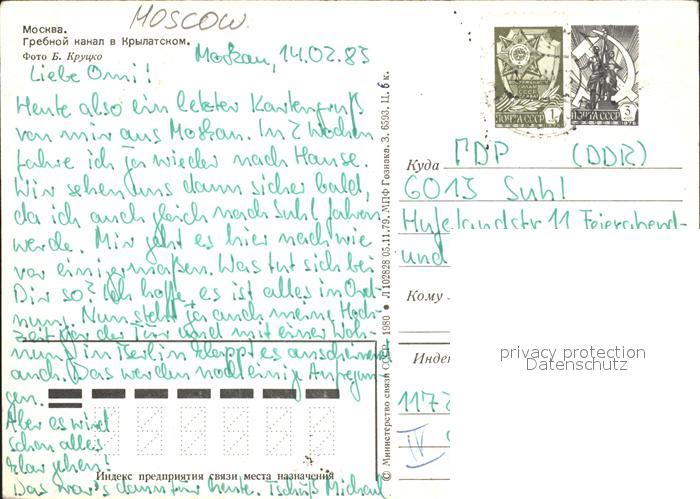 MOSCOW.
Москва.
Гребной канал в Крылатском.
Фото Б. Круцко
Moskau, 14.02.83
Liebe Omi!
Heute also ein letzter Kartengruß
von mir aus Moskau. In 2 Wochen
fahre ich ja wieder nach Hause.
Wir sehen uns dann sicher bald,
da ich auch gleich nach Suhl fahren
werde. Mir geht es hier nach wie
vor einigermaßen. Was tut sich bei
Dir so? Ich hoffe, es ist alles in Ord-
nung. Nun steht ja auch meine Hoch-
zeit vor der Tür und mit einer Woh-
nung in Berlin klappt es anscheinend
auch. Das werden noch einige Aufregun-
gen.
Aber es wird
schon alles
klar gehen!
Das war's dann für heute. Tschüß Michael
Индекс предприятия связи места назначения
© Министерство связи СССР. 1980 ● Л 102828 05.11.79. МПФ Гознака. З. 6593. Ц. 6 к.
ПОЧТА СССР 1
ПОЧТА СССР 3
Куда ГДР (DDR)
6013 Suhl
Hufelandstr. 11 Feierabend-
und
Кому
privacy protection
Datenschutz
Индек
117
IV